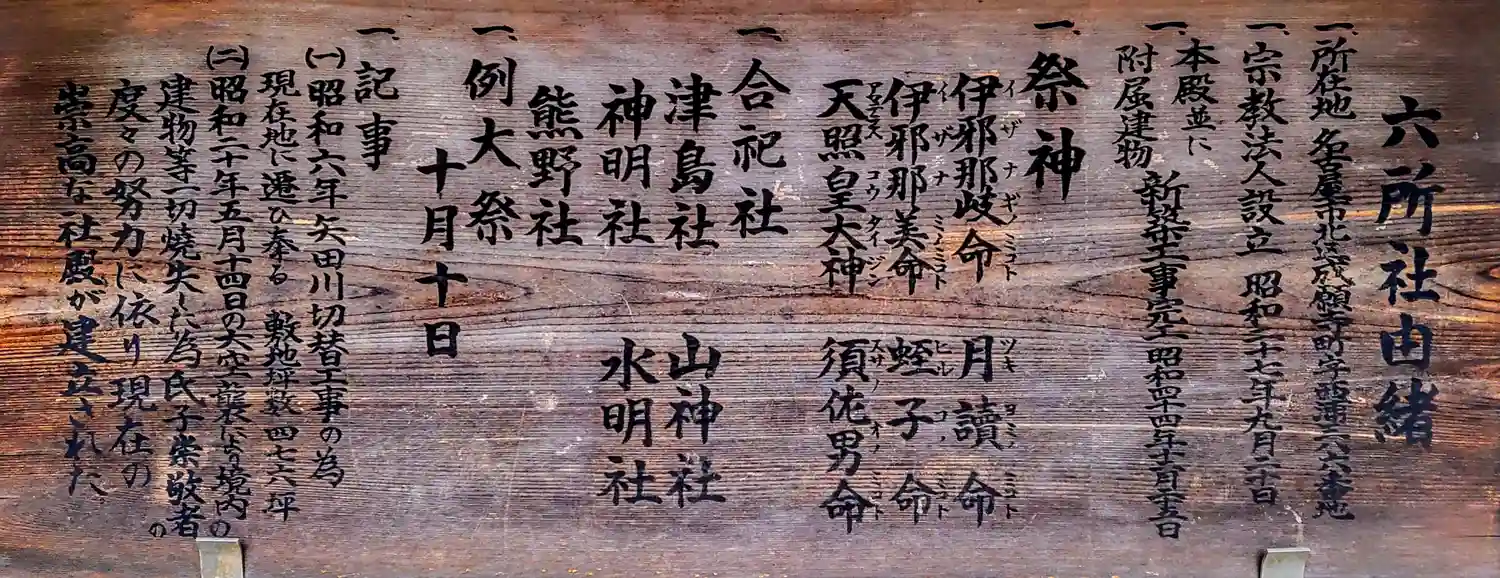 六所社由緒
一、所在地 名古屋市北区成願寺町字西浦二六六番地
一、宗教法人設立 昭和二十七年九月二十日
一、本殿並に
附属建物 新築工事完工 昭和四十四年十一月二十五日
一、祭神
伊邪那岐命 イザナギノミコト 月讀命 ツキヨミノミコト
伊邪那美命 イザナミノミコト 蛭子命 ヒルコノミコト
天照皇大神 アマテラスコウタイジン 須佐男命 スサノオノミコト
一、合祀社
津島社 山神社
神明社 水明社
熊野社
一、例大祭
十月十日
一、記事
(一)昭和六年矢田川切替工事の為
現在地に遷ひ奉る 敷地坪数四七六坪
(二)昭和二十年五月十四日の大空襲により境内の
建物等一切焼失した為氏子崇敬者の
度々の努力に依り現在の
崇高な社殿が建立された